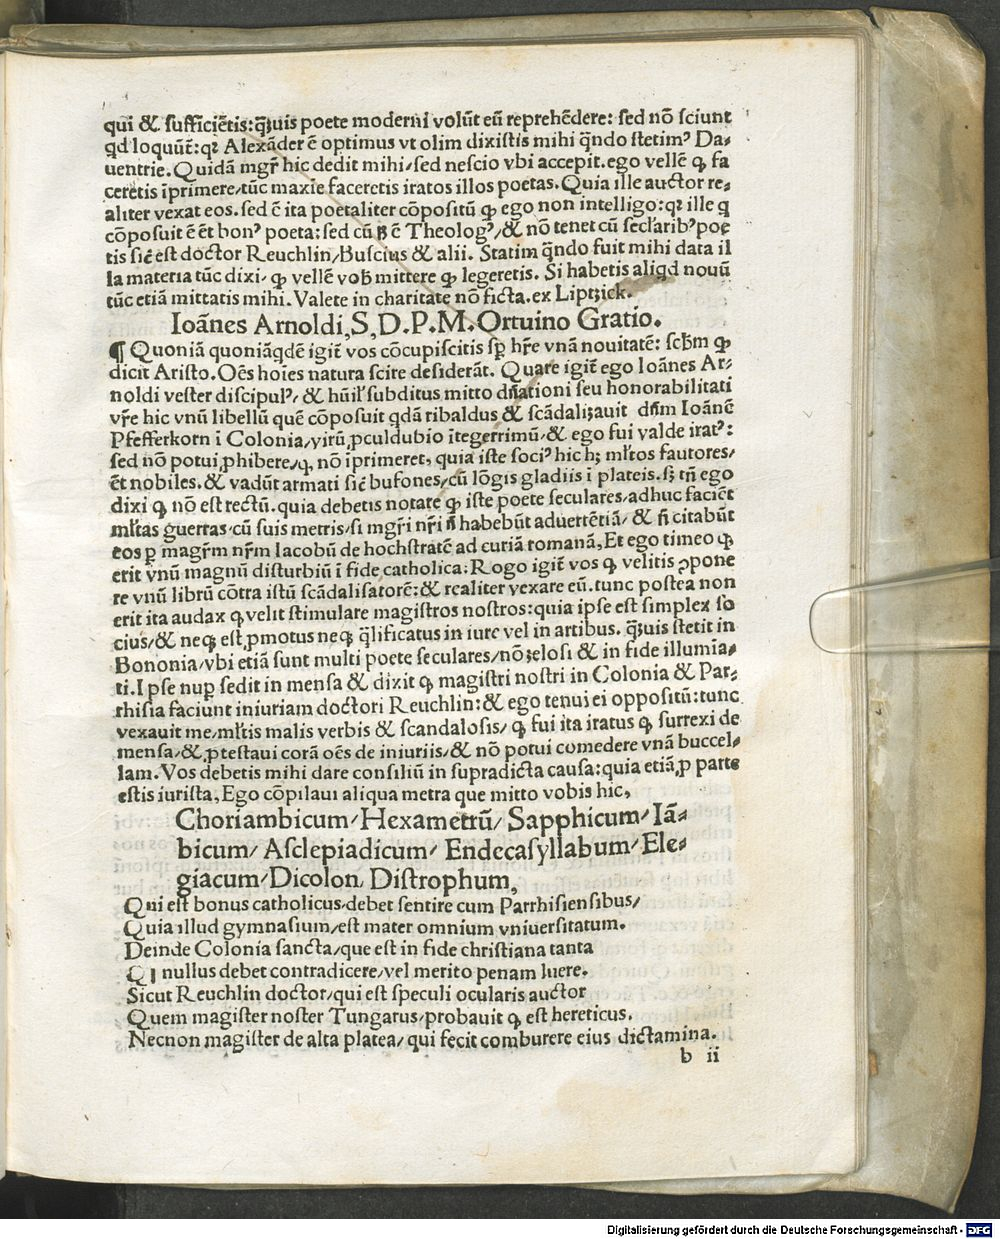 qui & sufficiẽtis: q̃uis poete moderni volũt eũ reprehẽdere: sed nõ sciunt
qd loquũt̃: qꝛ Alexãder ẽ optimus vt olim dixistis mihi q̃ndo stetimꝰ Da⸗
uentrie. Quidã mgr̃ hic dedit mihi/ sed nescio vbi accepit. ego vellẽ ꝙ fa
ceretis ĩprimere/ tũc maxiẽ faceretis iratos illos poetas. Quia ille auctor re⸗
aliter vexat eos. sed ẽ ita poetaliter cõpositũ ꝙ ego non intelligo: qꝛ ille q
cõposuit ẽ ẽt bonꝰ poeta: sed cũ ꝧ ẽ Theologꝰ/ & nõ tenet cũ secl̃aribꝰ poe
tis sic̃ est doctor Reuchlin/ Buscius & alii. Statim q̃ndo fuit mihi data il
la materia tũc dixi/ ꝙ vellẽ vob̃ mittere ꝙ legeretis. Si habetis aliqd nouũ
tũc etiã mittatis mihi. Valete in charitate nõ ficta. ex Liptzick.
Ioãnes Arnoldi, S, D. P. M. Ortuino Gratio.
¶ Quoniã quoniãqdẽ igit̃ vos cõcupiscitis sꝑ hr̃e vnã nouitatẽ: scḃm ꝙ
dicit Aristo. Oẽs hoĩes natura scire desiderãt. Quare igit̃ ego Ioãnes Ar⸗
noldi vester discipulꝰ/ & hũil̃ subditus mitto dñationi seu honorabilitati
vr̃e hic vnũ libellũ quẽ cõposuit qdã ribaldus & scãdalizauit dñm Ioãnẽ
Pfefferkorn ĩ Colonia/ virũ ꝓculdubio ĩtegerrimũ/ & ego fui valde iratꝰ:
sed nõ potui ꝓhibere/ ꝙ nõ ĩprimeret, quia iste sociꝰ hic hꝫ ml̃tos fautores/
ẽt nobiles. & vadũt armati sic̃ bufones/ cũ lõgis gladiis ĩ plateis. sꝫ tñ ego
dixi ꝙ nõ est rectũ. quia debetis notare ꝙ iste poete seculares/ adhuc faciẽt
ml̃tas guerras cũ suis metris/ si mgr̃i nr̃i ñ habebũt aduertẽtiã/ & ñ citabũt
eos ꝑ magr̃m nr̃m Iacobũ de hochstratẽ ad curiã romanã, Et ego timeo ꝙ
erit vnũ magnũ disturbiũ ĩ fide catholica: Rogo igit̃ vos ꝙ velitis ꝯpone
re vnũ librũ cõtra istũ scãdalisatorẽ: & realiter vexare eũ. tunc postea non
erit ita audax ꝙ velit stimulare magistros nostros: quia ipse est simplex so
cius/ & neqꝫ est ꝓmotus neqꝫ q̃lificatus in iure vel in artibus. q̃uis stetit in
Bononia/ vbi etiã sunt multi poete seculares/ nõ zelosi & in fide illumĩa⸗
ti. Ipse nuꝑ sedit in mensa & dixit ꝙ magistri nostri in Colonia & Par⸗
rhisia faciunt iniuriam doctori Reuchlin: & ego tenui ei oppositũ: tunc
vexauit me/ ml̃tis malis verbis & scandalosis/ ꝙ fui ita iratus ꝙ surrexi de
mensa/ & ꝓtestaui corã oẽs de iniuriis/ & nõ potui comedere vnã buccel⸗
lam. Vos debetis mihi dare consiliũ in supradicta causa: quia etiã ꝓ parte
estis iurista, Ego cõpilaui aliqua metra que mitto vobis hic,
Choriambicum/ Hexametrũ/ Sapphicum/ Iã⸗
bicum/ Asclepiadicum/ Endecasyllabum/ Ele⸗
giacum/ Dicolon, Distrophum,
Qui est bonus catholicus debet sentire cum Parrhisiensibus/
Quia illud gymnasium/ est mater omnium vniuersitatum.
Deinde Colonia sancta/ que est in fide christiana tanta
Qꝫ nullus debet contradicere/ vel merito penam luere.
Sicut Reuchlin doctor/ qui est speculi ocularis auctor
Quem magister noster Tungarus/ probauit ꝙ est hereticus.
Necnon magister de alta platea/ qui fecit comburere eius dictamina.
b ii
Digitalisierung gefördert durch die Deutsche Forschungsgemeinschaft - DFG